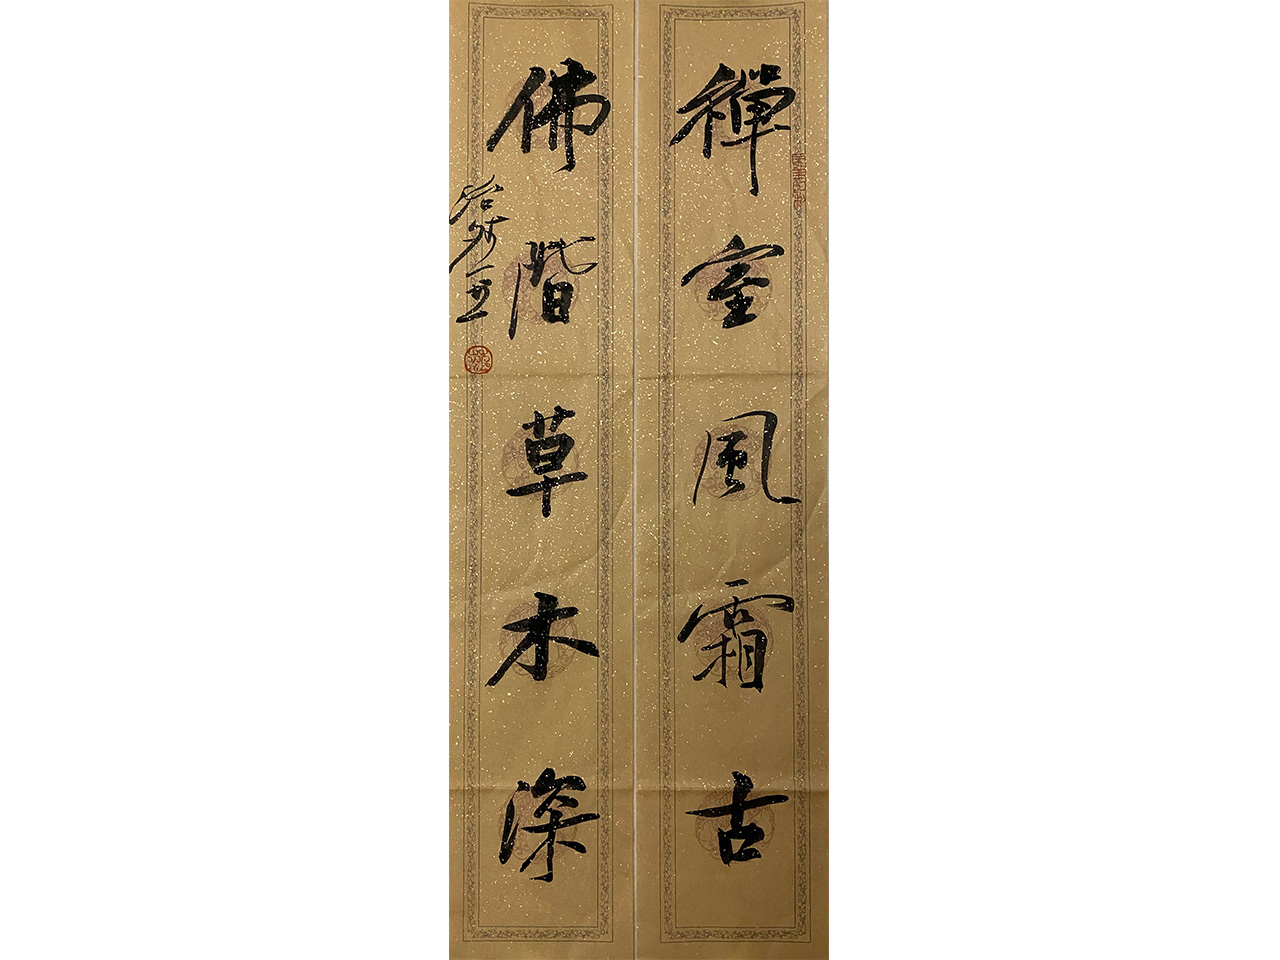 禪室風霜古
佛階草木深